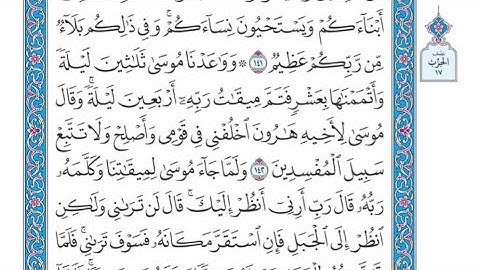 أَبْنَآءَكُمْ وَيَسْتَحْيُونَ نِسَآءَكُمْ ۚ وَفِى ذَٰلِكُم بَلَآءٌ
مِّن رَّبِّكُمْ عَظِيمٌ ١٤١ ۞ وَوَٰعَدْنَا مُوسَىٰ ثَلَٰثِينَ لَيْلَةً
وَأَتْمَمْنَٰهَا بِعَشْرٍ فَتَمَّ مِيقَٰتُ رَبِّهِۦٓ أَرْبَعِينَ لَيْلَةً ۚ وَقَالَ
مُوسَىٰ لِأَخِيهِ هَٰرُونَ ٱخْلُفْنِى فِى قَوْمِى وَأَصْلِحْ وَلَا تَتَّبِعْ
سَبِيلَ ٱلْمُفْسِدِينَ ١٤٢ وَلَمَّا جَآءَ مُوسَىٰ لِمِيقَٰتِنَا وَكَلَّمَهُۥ
رَبُّهُۥ قَالَ رَبِّ أَرِنِىٓ أَنظُرْ إِلَيْكَ ۚ قَالَ لَن تَرَىٰنِى وَلَٰكِنِ
ٱنظُرْ إِلَى ٱلْجَبَلِ فَإِنِ ٱسْتَقَرَّ مَكَانَهُۥ فَسَوْفَ تَرَىٰنِى ۚ فَلَمَّا
نصف
الحزب
١٧